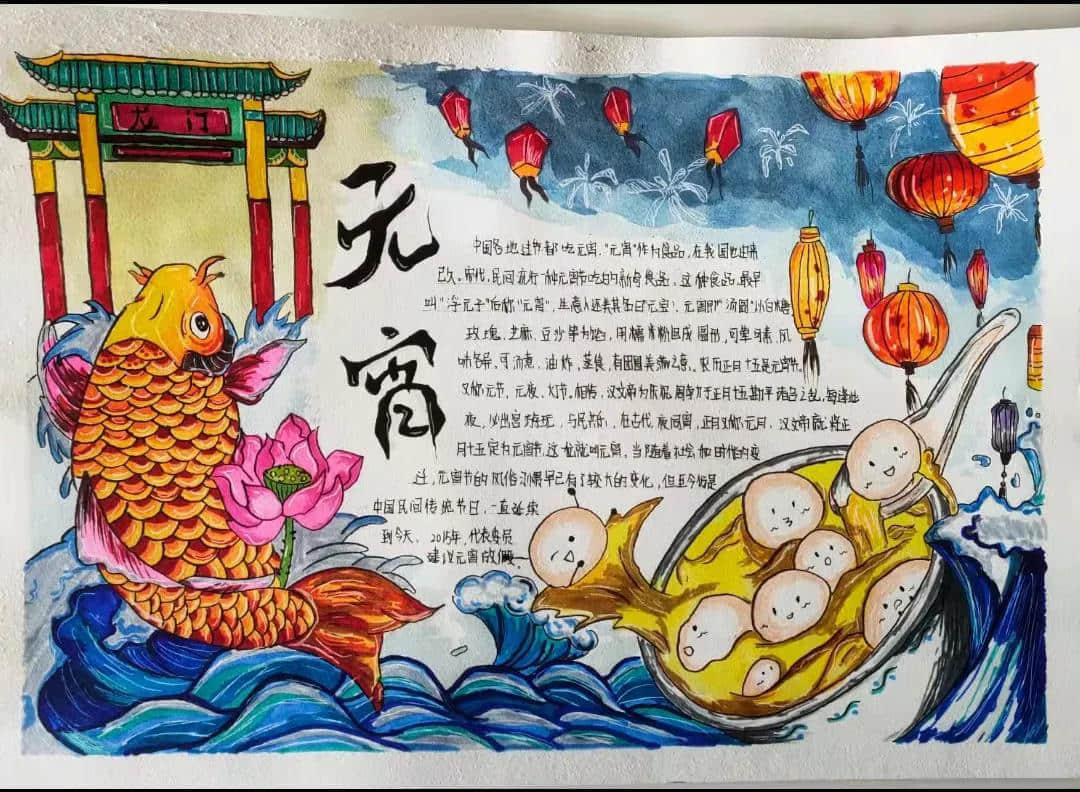 龙门
元宵
中国各地过节都吃元宵,"元宵"作为食品,在我国也由来
已久。宋代,民间流行一种元宵节吃的新奇食品。这种食品,最早
叫"浮元子"后称"元宵",生意人还美其名曰"元宝"。元宵即"汤圆"以白糖、
玫瑰、芝麻、豆沙等为馅,用糯米粉包成圆形,可荤可素,风
味各异。可汤煮、油炸、蒸食,有团圆美满之意。农历正月十五是元宵节,
又称元节、元夜、灯节。相传,汉文帝为庆祝周勃于正月十五勘平诸吕之乱,每逢此
夜,必出宫游玩,与民共乐,在古代,夜同宵,正月又称元月,汉文帝就将正
月十五定为元宵节,这夜就叫元宵。当随着社会和时代的变
迁,元宵节的风俗习惯早已有了较大的变化,但至今仍是
中国民间传统节日,一直延续
到今天、2015年,代表委员
建议元宵放假。